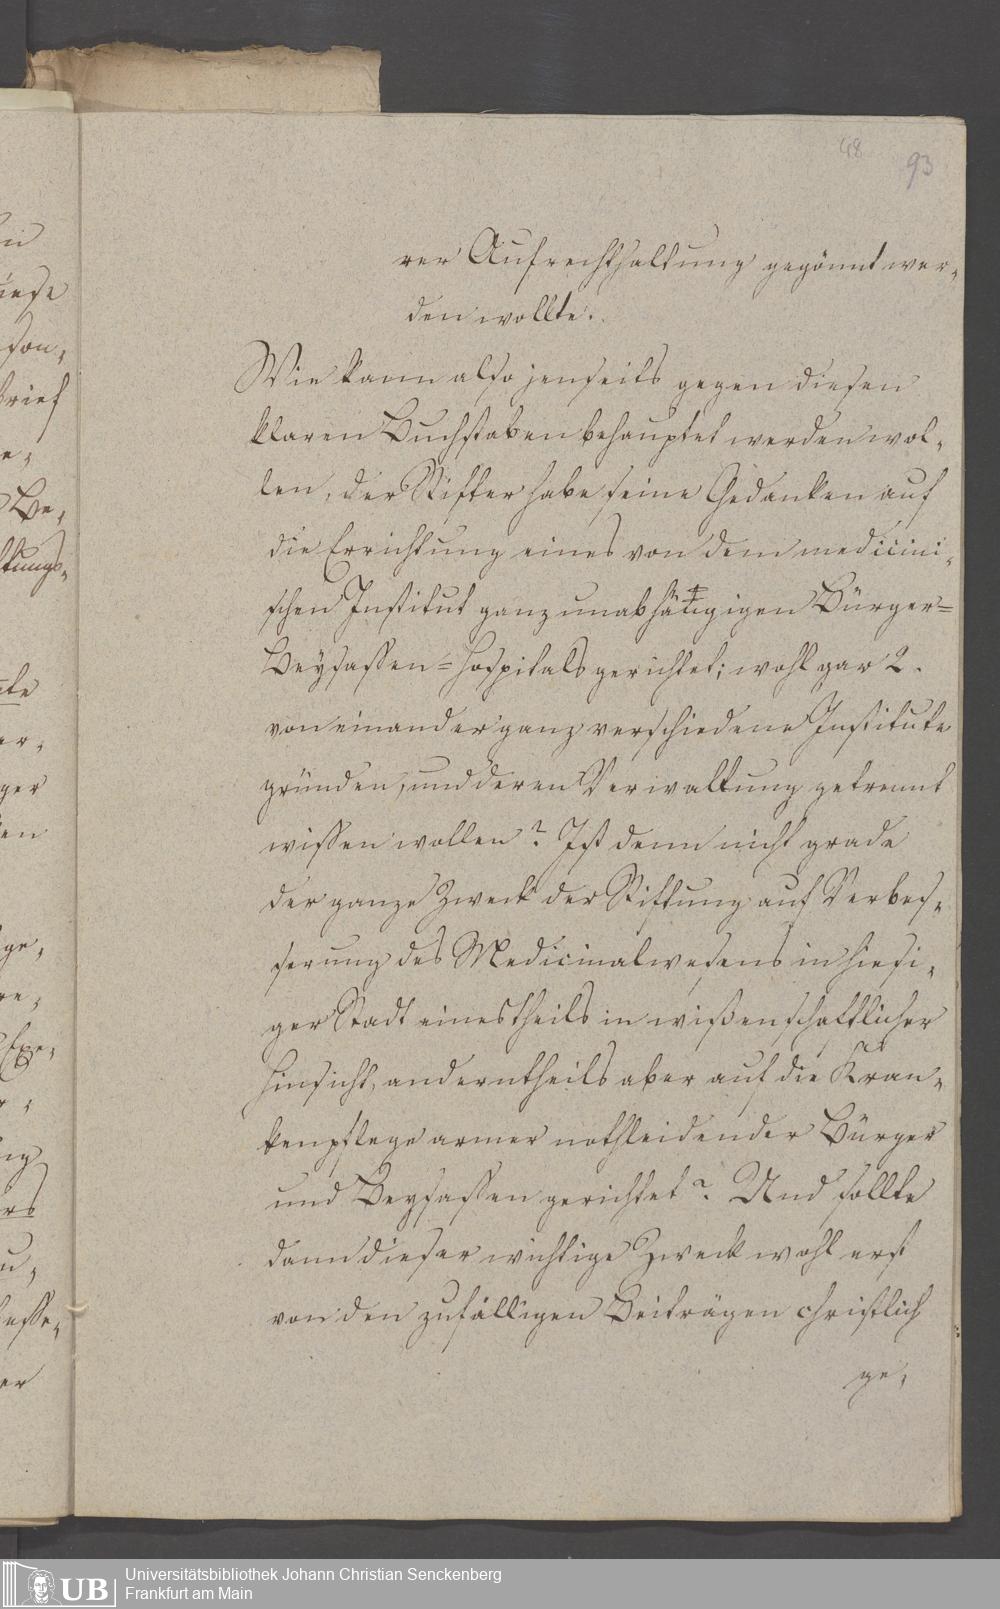 48
93
rer Aufrechthaltung gegönnt wer-
den wollte.
Wie kann also jenseits gegen diesen
klaren Buchstaben behauptet werden wol-
len, der Stifter habe seine Gedanken auf
die Errichtung eines von dem medicini-
schen Institut ganz unabhängigen Bürger=
Beysassen=Hospitals gerichtet; wohl gar 2.
von einander ganz verschiedene Institute
gründen, und deren Verwaltung getrennt
wissen wollen? Ist denn nicht grade
der ganze Zweck der Stiftung auf Verbes-
serung des Medicinalwesens in hiesi-
ger Stadt einestheils in wißenschaftlicher
Hinsicht, anderntheils aber auf die Kran-
kenpflege armer nothleidender Bürger
und Beysassen gerichtet? Und sollte
dann dieser wichtige Zweck wohl erst
von den zufälligen Beiträgen christlich
ge-
Universitätsbibliothek Johann Christian Senckenberg
Frankfurt am Main
UB